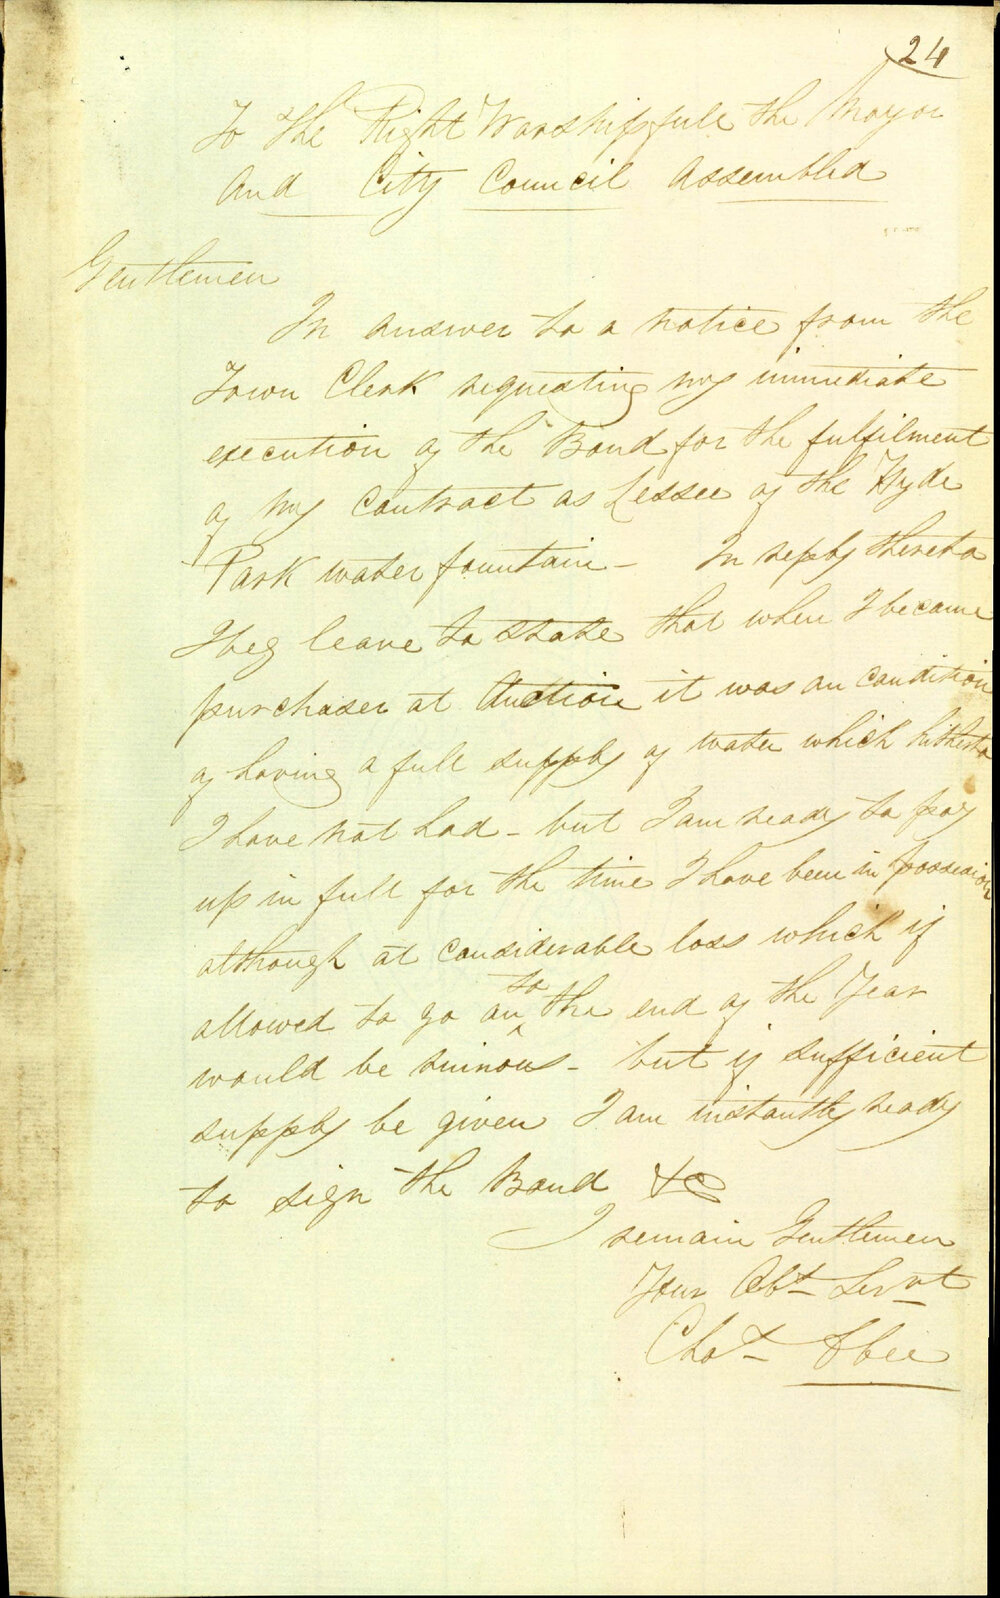 24
To the Right Worshipfull the Mayor
And City Council Assembled
Gentlemen
In answer to a notice from the
Town Clerk requesting my immediate
execution of the Bond for the fulfilment
of my Contract as Lessee of the Hyde
Park water fountain - In reply thereto
I beg leave to state that when I became
purchaser at Auction it was on condition
of having a full supply of water which hitherto
I have not had - but I am ready to pay
up in full for the time I have been in possession
although at considerable loss which if
allowed to go on to the end of the Year
would be ruinous - but if sufficient
supply be given I am instantly ready
to sign the Bond &c
I remain Gentlemen
Your Obt Servt
Chas